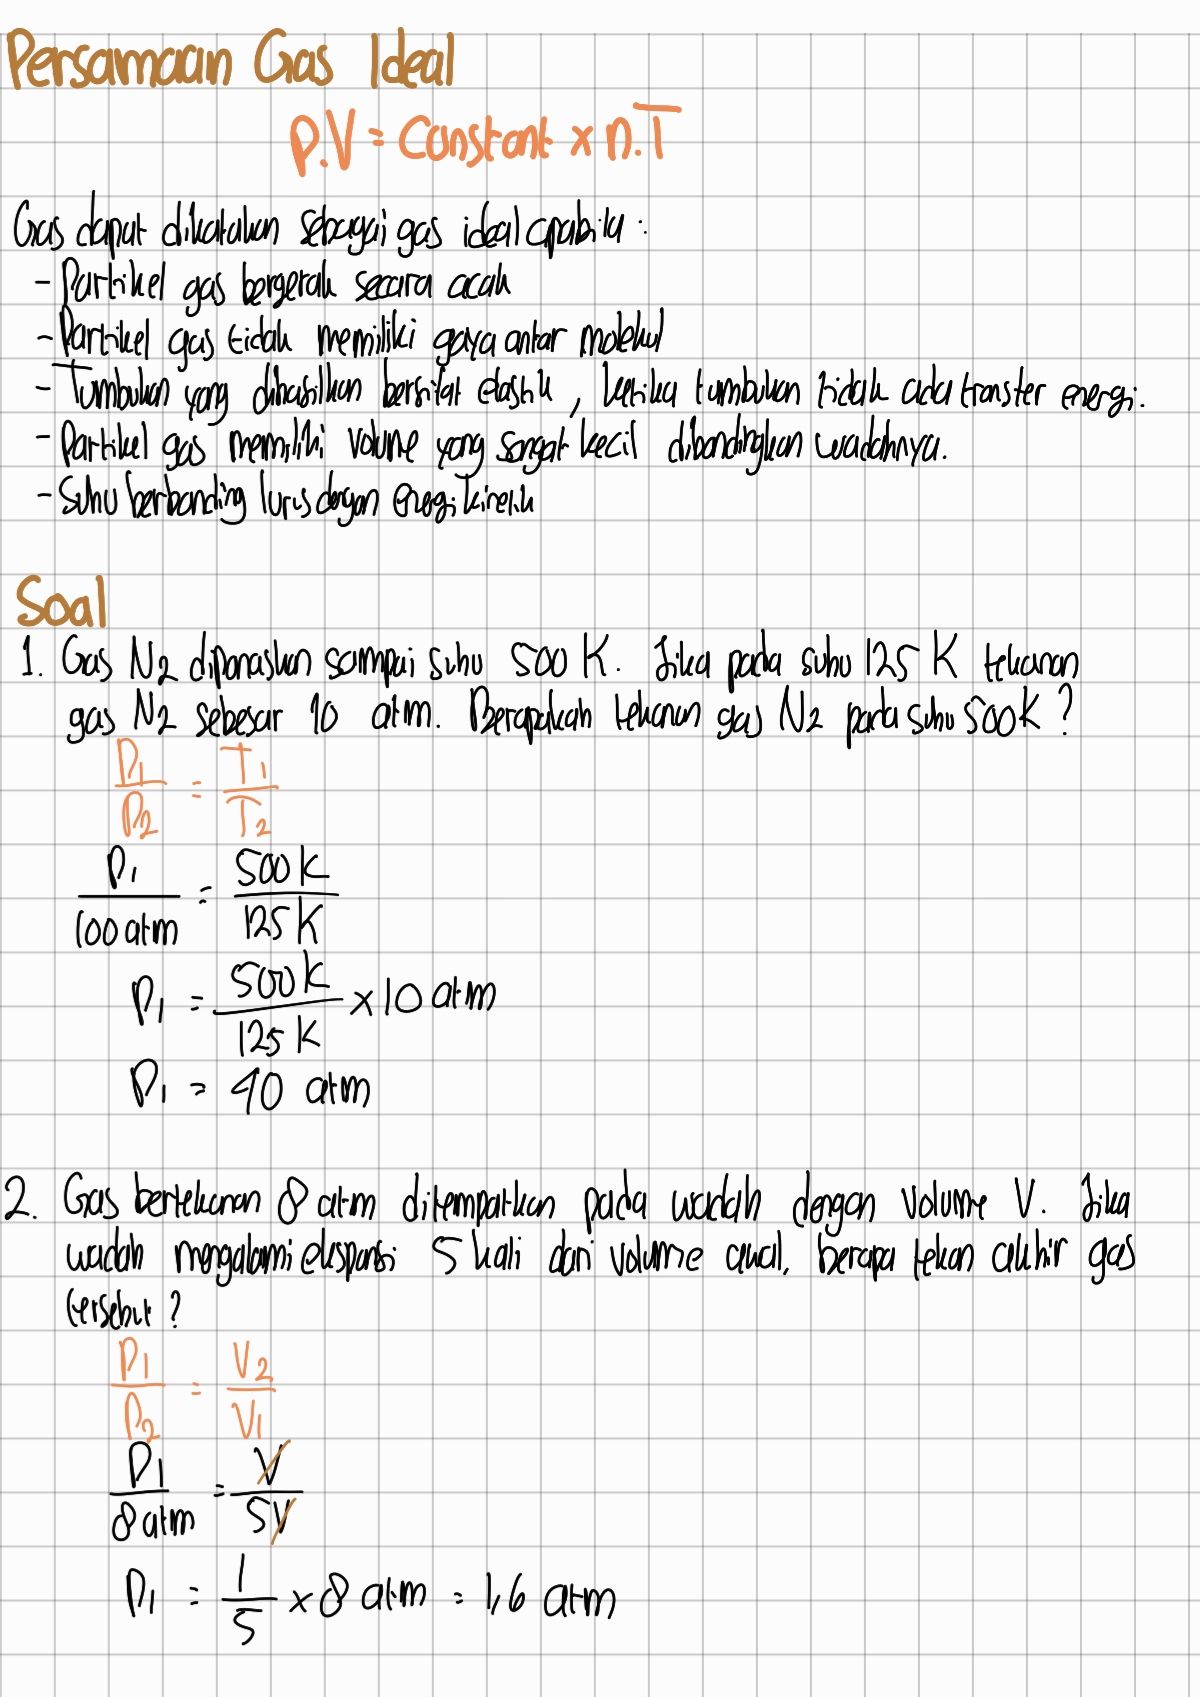 Persamaan Gas Ideal
P.V = Constant x n.T
Gas dapat dikatakan sebagai gas ideal apabila :
- Partikel gas bergerak secara acak
- Partikel gas tidak memiliki gaya antar molekul
- Tumbukan yang dihasilkan bersifat elastik , ketika tumbukan tidak ada transfer energi.
- Partikel gas memiliki volume yang sangat kecil dibandingkan wadahnya.
- Suhu berbanding lurus dengan energi kinetik
Soal
1. Gas N2 dipanaskan sampai suhu 500 K. Jika pada suhu 125 K tekanan
gas N2 sebesar 10 atm. Berapakah tekanan gas N2 pada suhu 500 K ?
P1/P2 = T1/T2
P1/100 atm = 500 K/125 K
P1 = 500 K/125 K x 10 atm
P1 = 40 atm
2. Gas bertekanan 8 atm ditempatkan pada wadah dengan volume V. Jika
wadah mengalami ekspansi 5 kali dari volume awal, berapa tekan akhir gas
tersebut ?
P1/P2 = V2/V1
P1/8 atm = V/5V
P1 = 1/5 x 8 atm = 1,6 atm